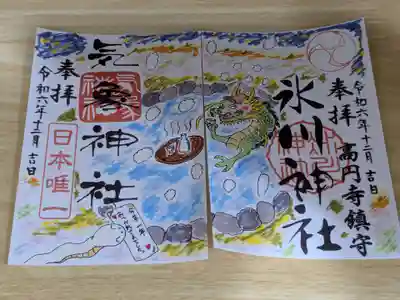 奉拝
令和六年十二月吉日
高円寺鎮守
氷川神社
気象神社
奉拝
令和六年十二月吉日
日本唯一